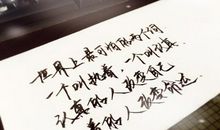 世界上最可怕的两个词
一个叫执着，一个叫认真
认真的人改变自己
执着的人改变命运